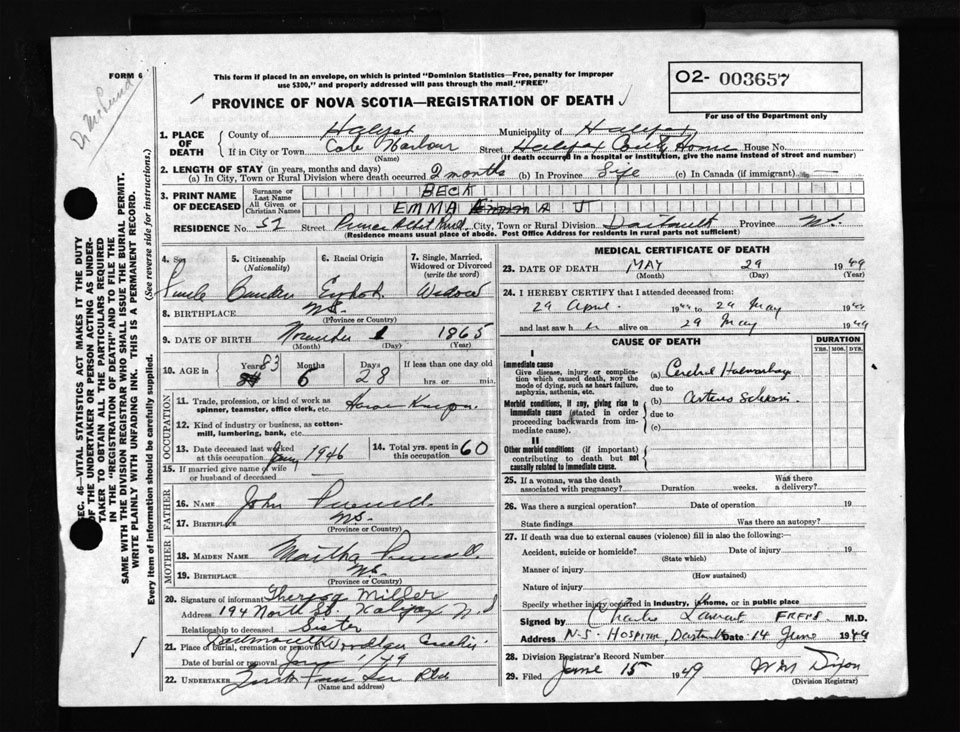 FORM 6
This form if placed in an envelope, on which is printed "Dominion Statistics—Free, penalty for improper
use $300," and properly addressed will pass through the mail "FREE"
O2- 003657
PROVINCE OF NOVA SCOTIA—REGISTRATION OF DEATH
For use of the Department only
SEC. 46—VITAL STATISTICS ACT MAKES IT THE DUTY
OF THE UNDERTAKER OR PERSON ACTING AS UNDER-
TAKER TO OBTAIN ALL THE PARTICULARS REQUIRED
IN THE "REGISTRATION OF DEATH" AND TO FILE THE
SAME WITH THE DIVISION REGISTRAR WHO SHALL ISSUE THE BURIAL PERMIT.
WRITE PLAINLY WITH UNFADING INK. THIS IS A PERMANENT RECORD.
Every item of information should be carefully supplied. (See reverse side for instructions.)
1. PLACE OF DEATH
County of Halifax Municipality of Halifax
If in City or Town Cole Harbour Street Halifax County Home House No.
(Name) (If death occurred in a hospital or institution, give the name instead of street and number)
2. LENGTH OF STAY (in years, months and days)
(a) In City, Town or Rural Division where death occurred 2 months (b) In Province Life (c) In Canada (if immigrant) —
3. PRINT NAME OF DECEASED
Surname or Last Name BECK
All Given or Christian Names EMMA A J
RESIDENCE No. 52 Street Prince Albert Road, City, Town or Rural Division Dartmouth Province N.S.
(Residence means usual place of abode. Post Office Address for residents in rural parts not sufficient)
4. Sex Female
5. Citizenship (Nationality) Canadian
6. Racial Origin English
7. Single, Married, Widowed or Divorced (write the word) Widow
8. BIRTHPLACE N.S.
(Province or Country)
9. DATE OF BIRTH November 1 1865
(Month) (Day) (Year)
10. AGE in Years 83 Months 6 Days 28 If less than one day old
hrs. or min.
OCCUPATION
11. Trade, profession, or kind of work as spinner, teamster, office clerk, etc. House Keeper
12. Kind of industry or business, as cotton-mill, lumbering, bank, etc.
13. Date deceased last worked at this occupation 1946
14. Total yrs. spent in this occupation 60
15. If married give name of wife or husband of deceased
FATHER
16. NAME John
17. BIRTHPLACE N.S.
(Province or Country)
MOTHER
18. MAIDEN NAME Martha
19. BIRTHPLACE N.S.
(Province or Country)
20. Signature of informant Theresa Miller
Address 194 North St. Halifax N.S
Relationship to deceased Sister
21. Place of burial, cremation or removal Dartmouth Woodlawn
Date of burial or removal 1/49
22. UNDERTAKER
(Name and address)
MEDICAL CERTIFICATE OF DEATH
23. DATE OF DEATH MAY 29 1949
(Month) (Day) (Year)
24. I HEREBY CERTIFY that I attended deceased from:
29 April 1949 to 29 May 1949
and last saw h alive on 29 May 1949
CAUSE OF DEATH
DURATION
YRS. MOS. DYS.
I
Immediate cause
Give disease, injury or complication which caused death, NOT the mode of dying, such as heart failure, asphyxia, asthenia, etc.
(a) Cerebral Haemorrhage
due to
Morbid conditions, if any, giving rise to immediate cause (stated in order proceeding backwards from immediate cause).
(b) Arterio Sclerosis
due to
(c)
II
Other morbid conditions (if important) contributing to death but not causally related to immediate cause.
25. If a woman, was the death associated with pregnancy? Duration weeks. Was there a delivery?
26. Was there a surgical operation? Date of operation 19
State findings Was there an autopsy?
27. If death was due to external causes (violence) fill in also the following:—
Accident, suicide or homicide? Date of injury 19
(State which)
Manner of injury
(How sustained)
Nature of injury
Specify whether injury occurred in Industry, in home, or in public place
Signed by Charles M.D.
Address N.S. Hospital, Dartmouth Date 14 June 1949
28. Division Registrar's Record Number
29. Filed June 15 1949 W M Dixon
(Division Registrar)